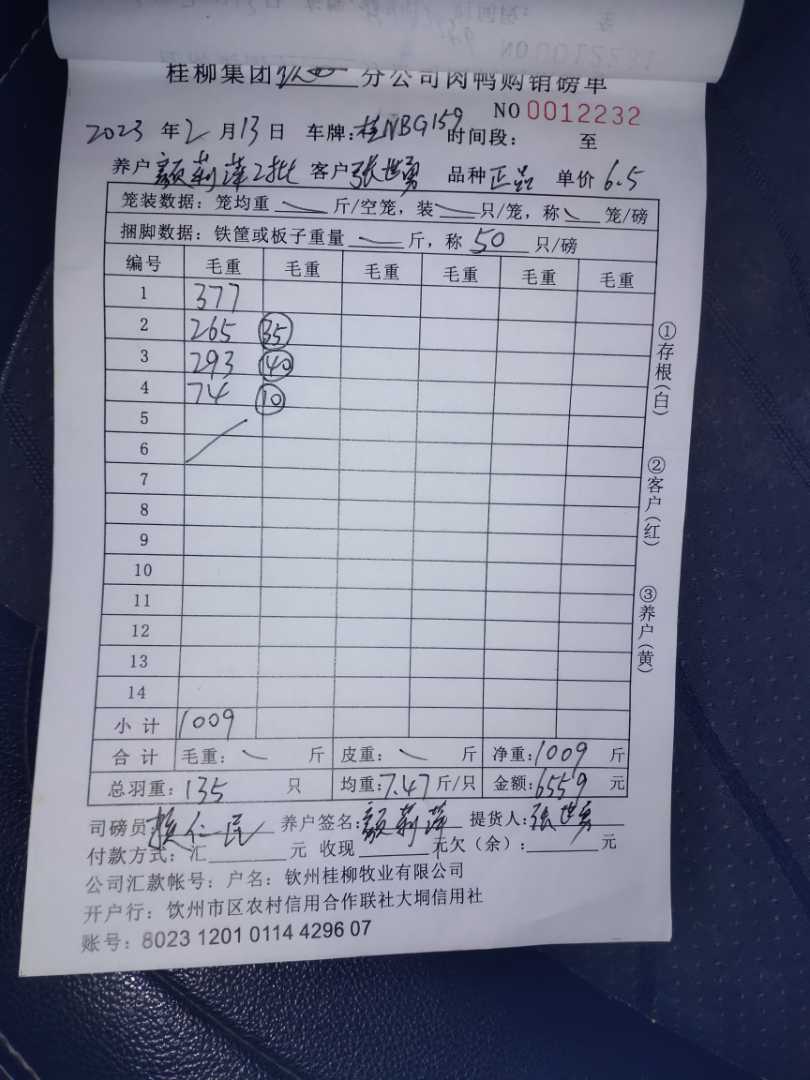 桂柳集团 分公司肉鸭购销磅单
NO 0012232
2023 年 2 月 13 日 车牌:桂NBG159 时间段: 至
养户 颜莉萍2批 客户 张世勇 品种 正品 单价 6.5
笼装数据:笼均重 斤/空笼,装 只/笼,称 笼/磅
捆脚数据:铁筐或板子重量 斤,称 50 只/磅
编号 毛重 毛重 毛重 毛重 毛重 毛重
1 377
2 265 35
3 293 40
4 74 10
5
6
7
8
9
10
11
12
13
14
小计 1009
合计 毛重: 斤 皮重: 斤 净重:1009 斤
总羽重:135 只 均重:7.47 斤/只 金额:6559 元
司磅员: 仁民 养户签名:颜莉萍 提货人:张世勇
付款方式:汇 元 收现 元欠(余): 元
公司汇款帐号:户名:钦州桂柳牧业有限公司
开户行:饮州市区农村信用合作联社大垌信用社
账号:8023 1201 0114 4296 07
①存根(白)
②客户(红)
③养户(黄)